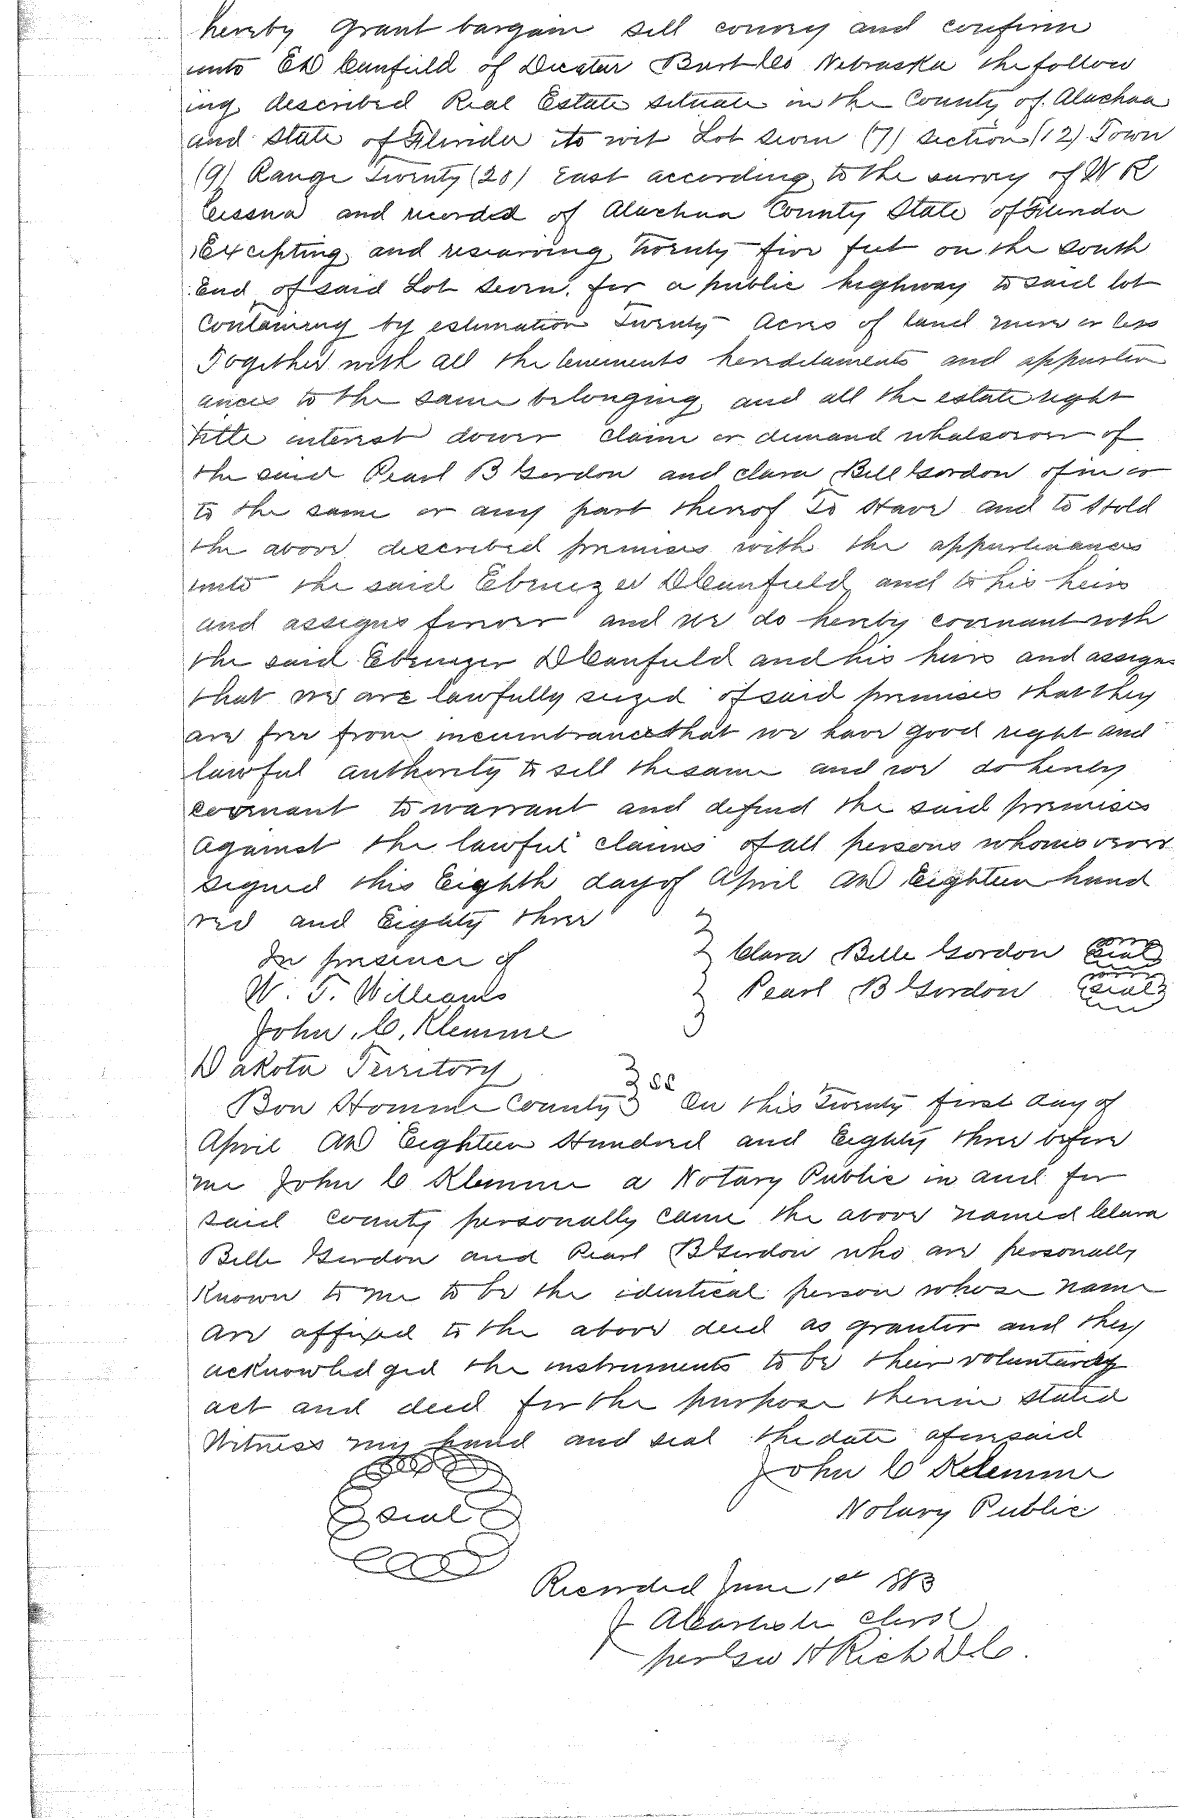 hereby grant bargain sell convey and confirm
unto E D Canfield of Decatur Burt Co Nebraska the follow
ing described Real Estate situate in the County of Alachua
and State of Florida to wit Lot seven (7) section (12) Town
(9) Range Twenty (20) East according to the survey of W R
Cessna and recorded of Alachua County State of Florida
Excepting and reserving twenty five feet on the south
End of said Lot seven for a public highway to said lot
Containing by estimation Twenty Acres of land more or less
Together with all the tenements hereditaments and appurten
ances to the same belonging and all the estate right
title interest dower claim or demand whatsoever of
the said Pearl B Gordon and Clara Bell Gordon of in or
to the same or any part thereof To Have and to Hold
the above described premises with the appurtenances
unto the said Ebenezer D Canfield and to his heirs
and assigns forever and we do hereby covenant with
the said Ebenezer D Canfield and his heirs and assigns
that we are lawfully seized of said premises that they
are free from incumbrance that we have good right and
lawful authority to sell the same and we do hereby
covenant to warrant and defend the said premises
against the lawful claims of all persons whomsoever
signed this Eighth day of April AD Eighteen hund
red and Eighty three
In presence of Clara Belle Gordon seal
W. T. Williams Pearl B Gordon seal
John. C. Klemme
Dakota Territory
Bon Homme County ss On this Twenty first day of
April AD Eighteen Hundred and Eighty three before
me John C Klemme a Notary Public in and for
said county personally came the above named Clara
Belle Gordon and Pearl B Gordon who are personally
Known to me to be the identical person whose name
are affixed to the above deed as grantor and they
acknowledged the instruments to be their voluntary
act and deed for the purpose therein stated
Witness my hand and seal the date aforesaid
John C Klemme
seal
Notary Public
Recorded June 1st 1883
J A Carlisle Clerk
per Geo H Rich D.C.